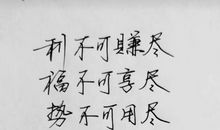 利不可賺尽
福不可享尽
势不可用尽